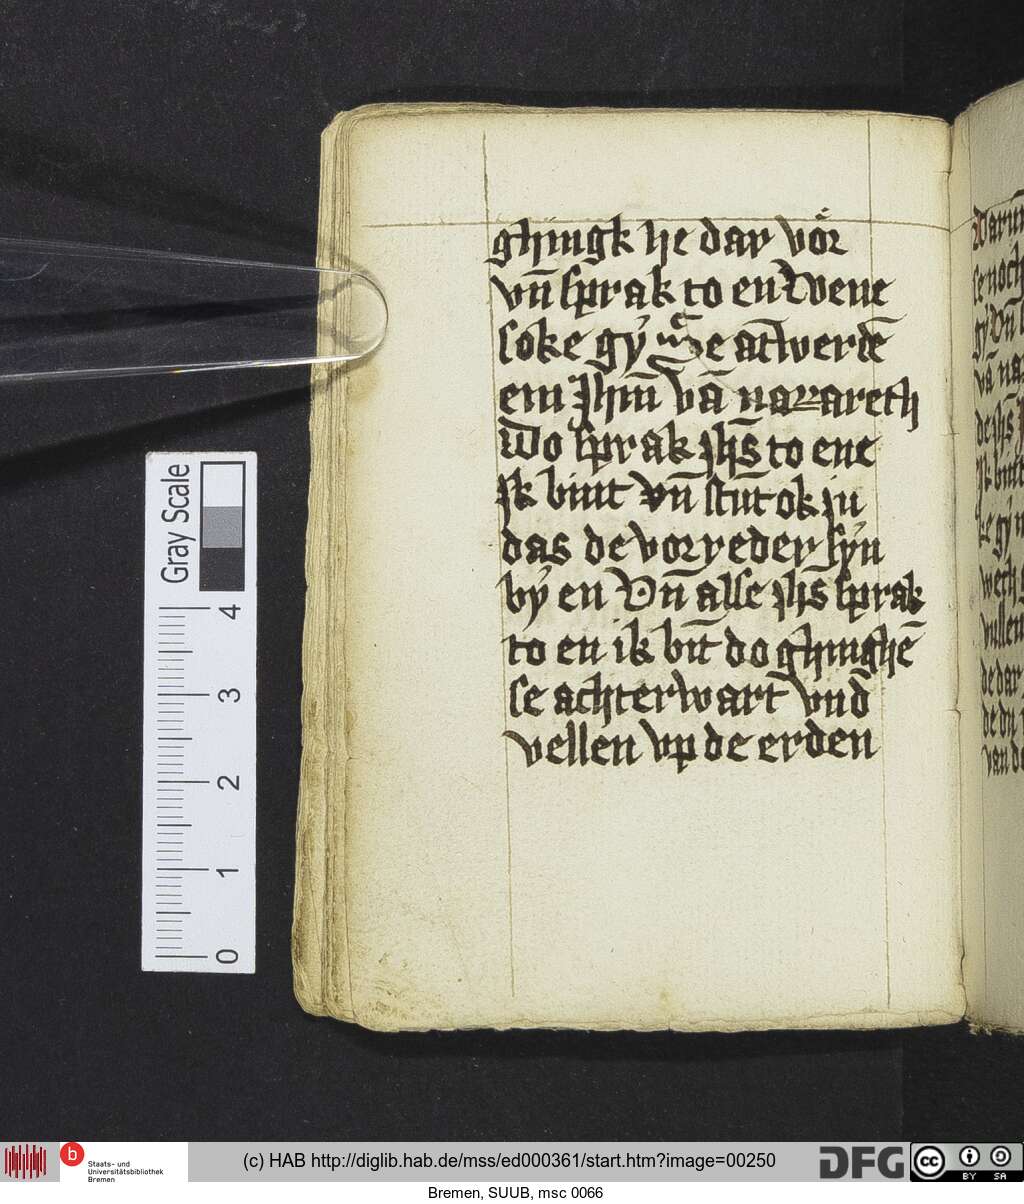 ghingk he dar vör
vn̄ sprak to en Wene
soke gy̍ se ātwerdē
em Jhm̄ vā nazareth
Do sprak jhs̄ to ene
Jk bint vn̄ stūt ok ju
das de vorreder syn
by̍ en Vn̄ alse jhs̄ sprak
to en ik bīt do ghinghē
se achterwart vnd̄
vellen vp de erden
Gray Scale
4
3
2
1
0
b
Staats- und
Universitätsbibliothek
Bremen
(c) HAB http://diglib.hab.de/mss/ed000361/start.htm?image=00250
DFG
cc
BY SA
Bremen, SUUB, msc 0066